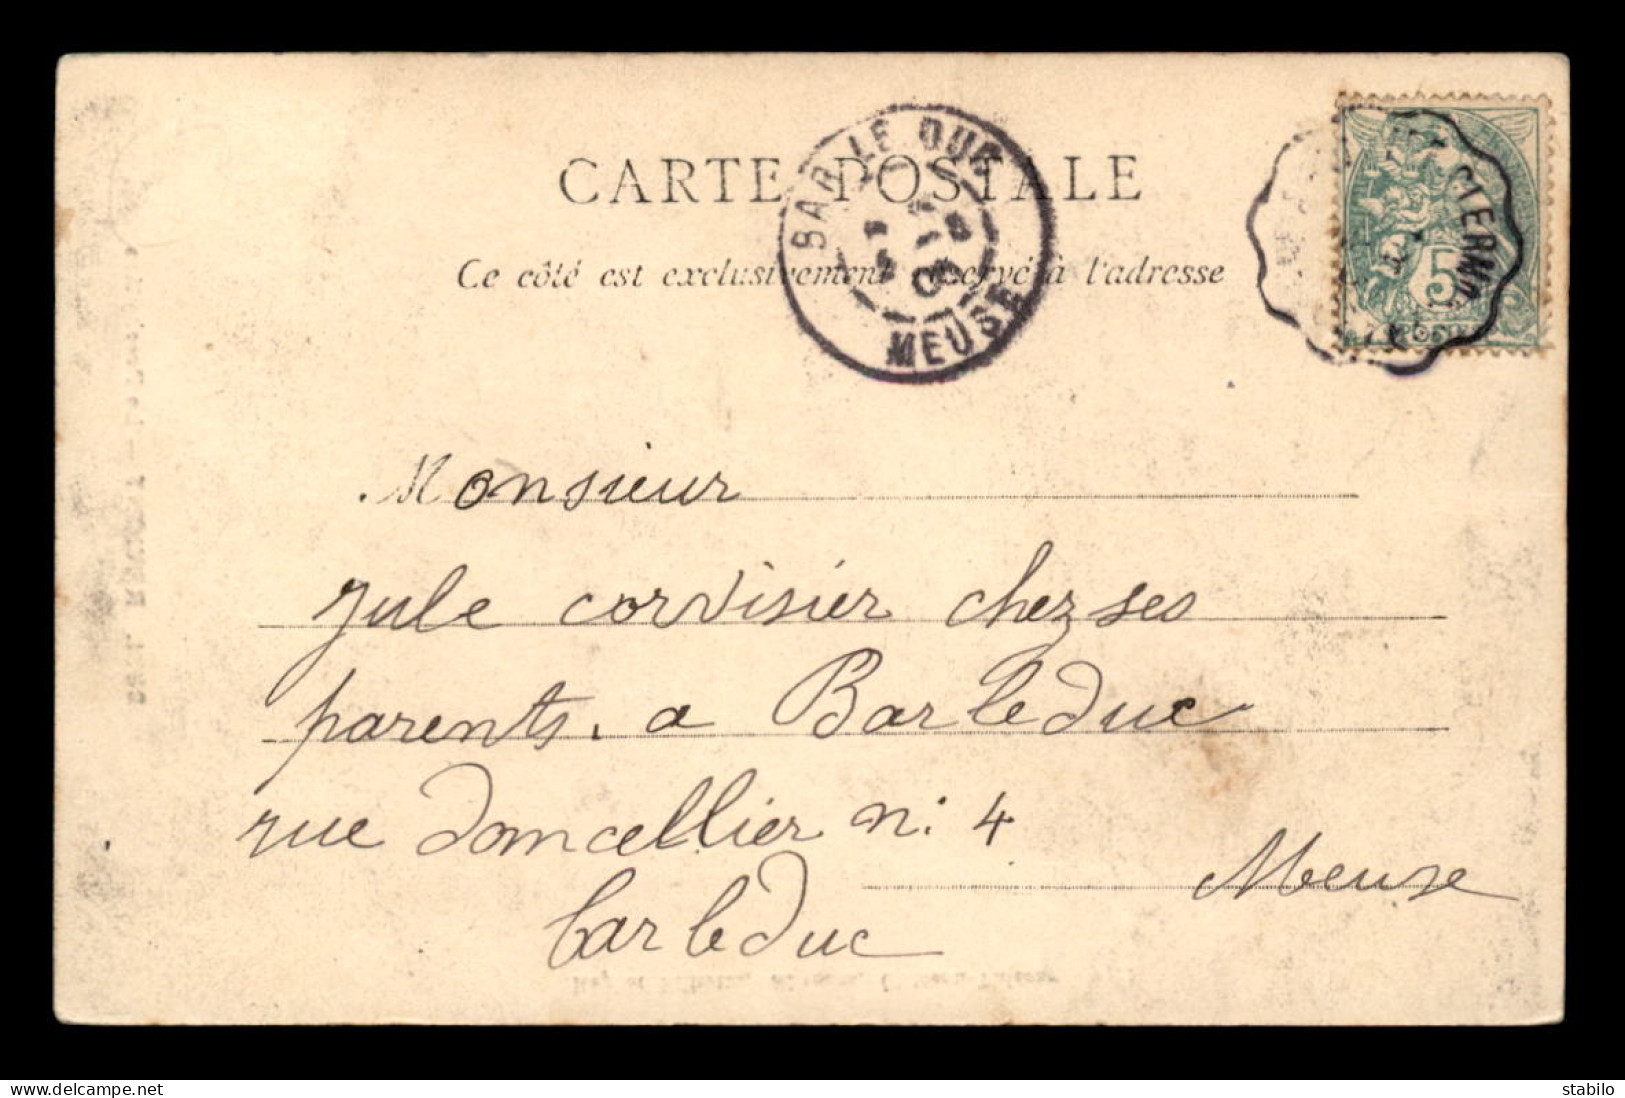 CARTE POSTALE
Ce côté est exclusivement réservé à l'adresse
BAR-LE-DUC
MEUSE
CLERMO
5
Monsieur
Jule corvisier chez ses
parents. a Bar le Duc
rue Domcellier n: 4
Meuse
bar le Duc
delcampe.net
stabilo